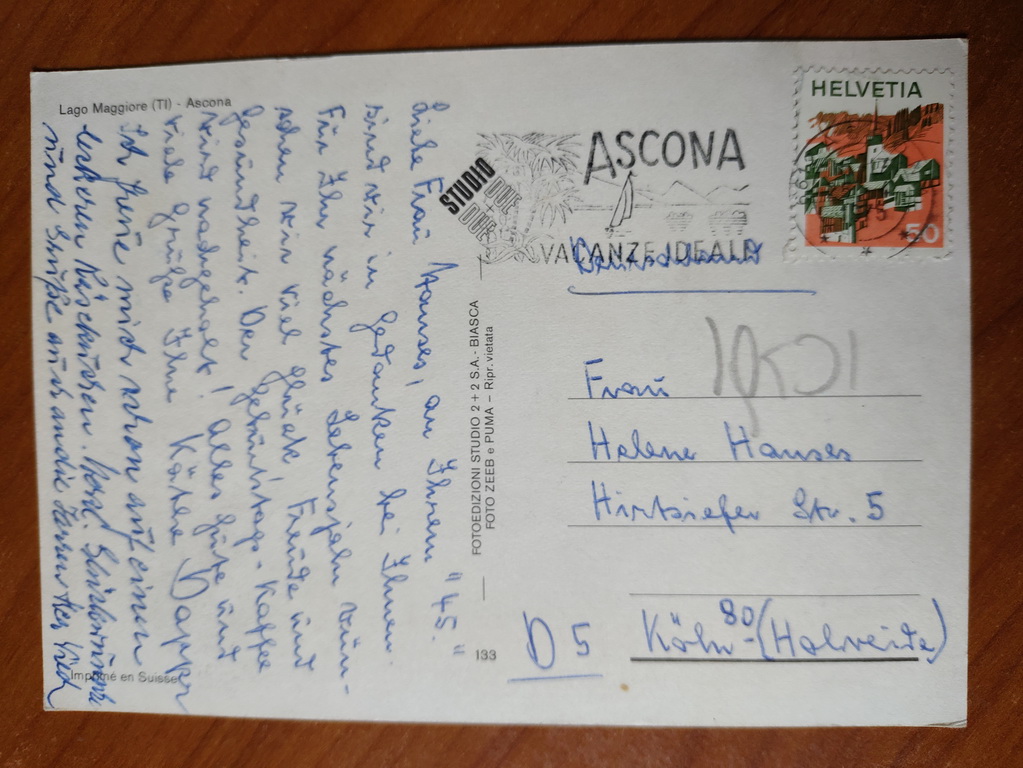 Lago Maggiore (TI) - Ascona
Liebe Frau Hanses, an Ihrem "45."
sind wir in Gedanken bei Ihnen.
Für Ihr nächstes Lebensjahr wün-
schen wir viel Glück, Freude und
Gesundheit. Der Geburtstags-Kaffee
wird nachgeholt! Alles Gute und
viele Grüße Ihre Käthe Dapper
Ich freue mich schon auf einen
leckeren Herzl.
und Grüße auch an die
Imprimé en Suisse
STUDIO
DUE
DUE
133
FOTOEDIZIONI STUDIO 2 + 2 S.A. - BIASCA
FOTO ZEEB e PUMA – Ripr. vietata
ASCONA
VACANZE IDEALI
HELVETIA
50
Frau
Helene Hanses
Hirtsiefer Str. 5
D 5
Köln 80 - (Holweide)